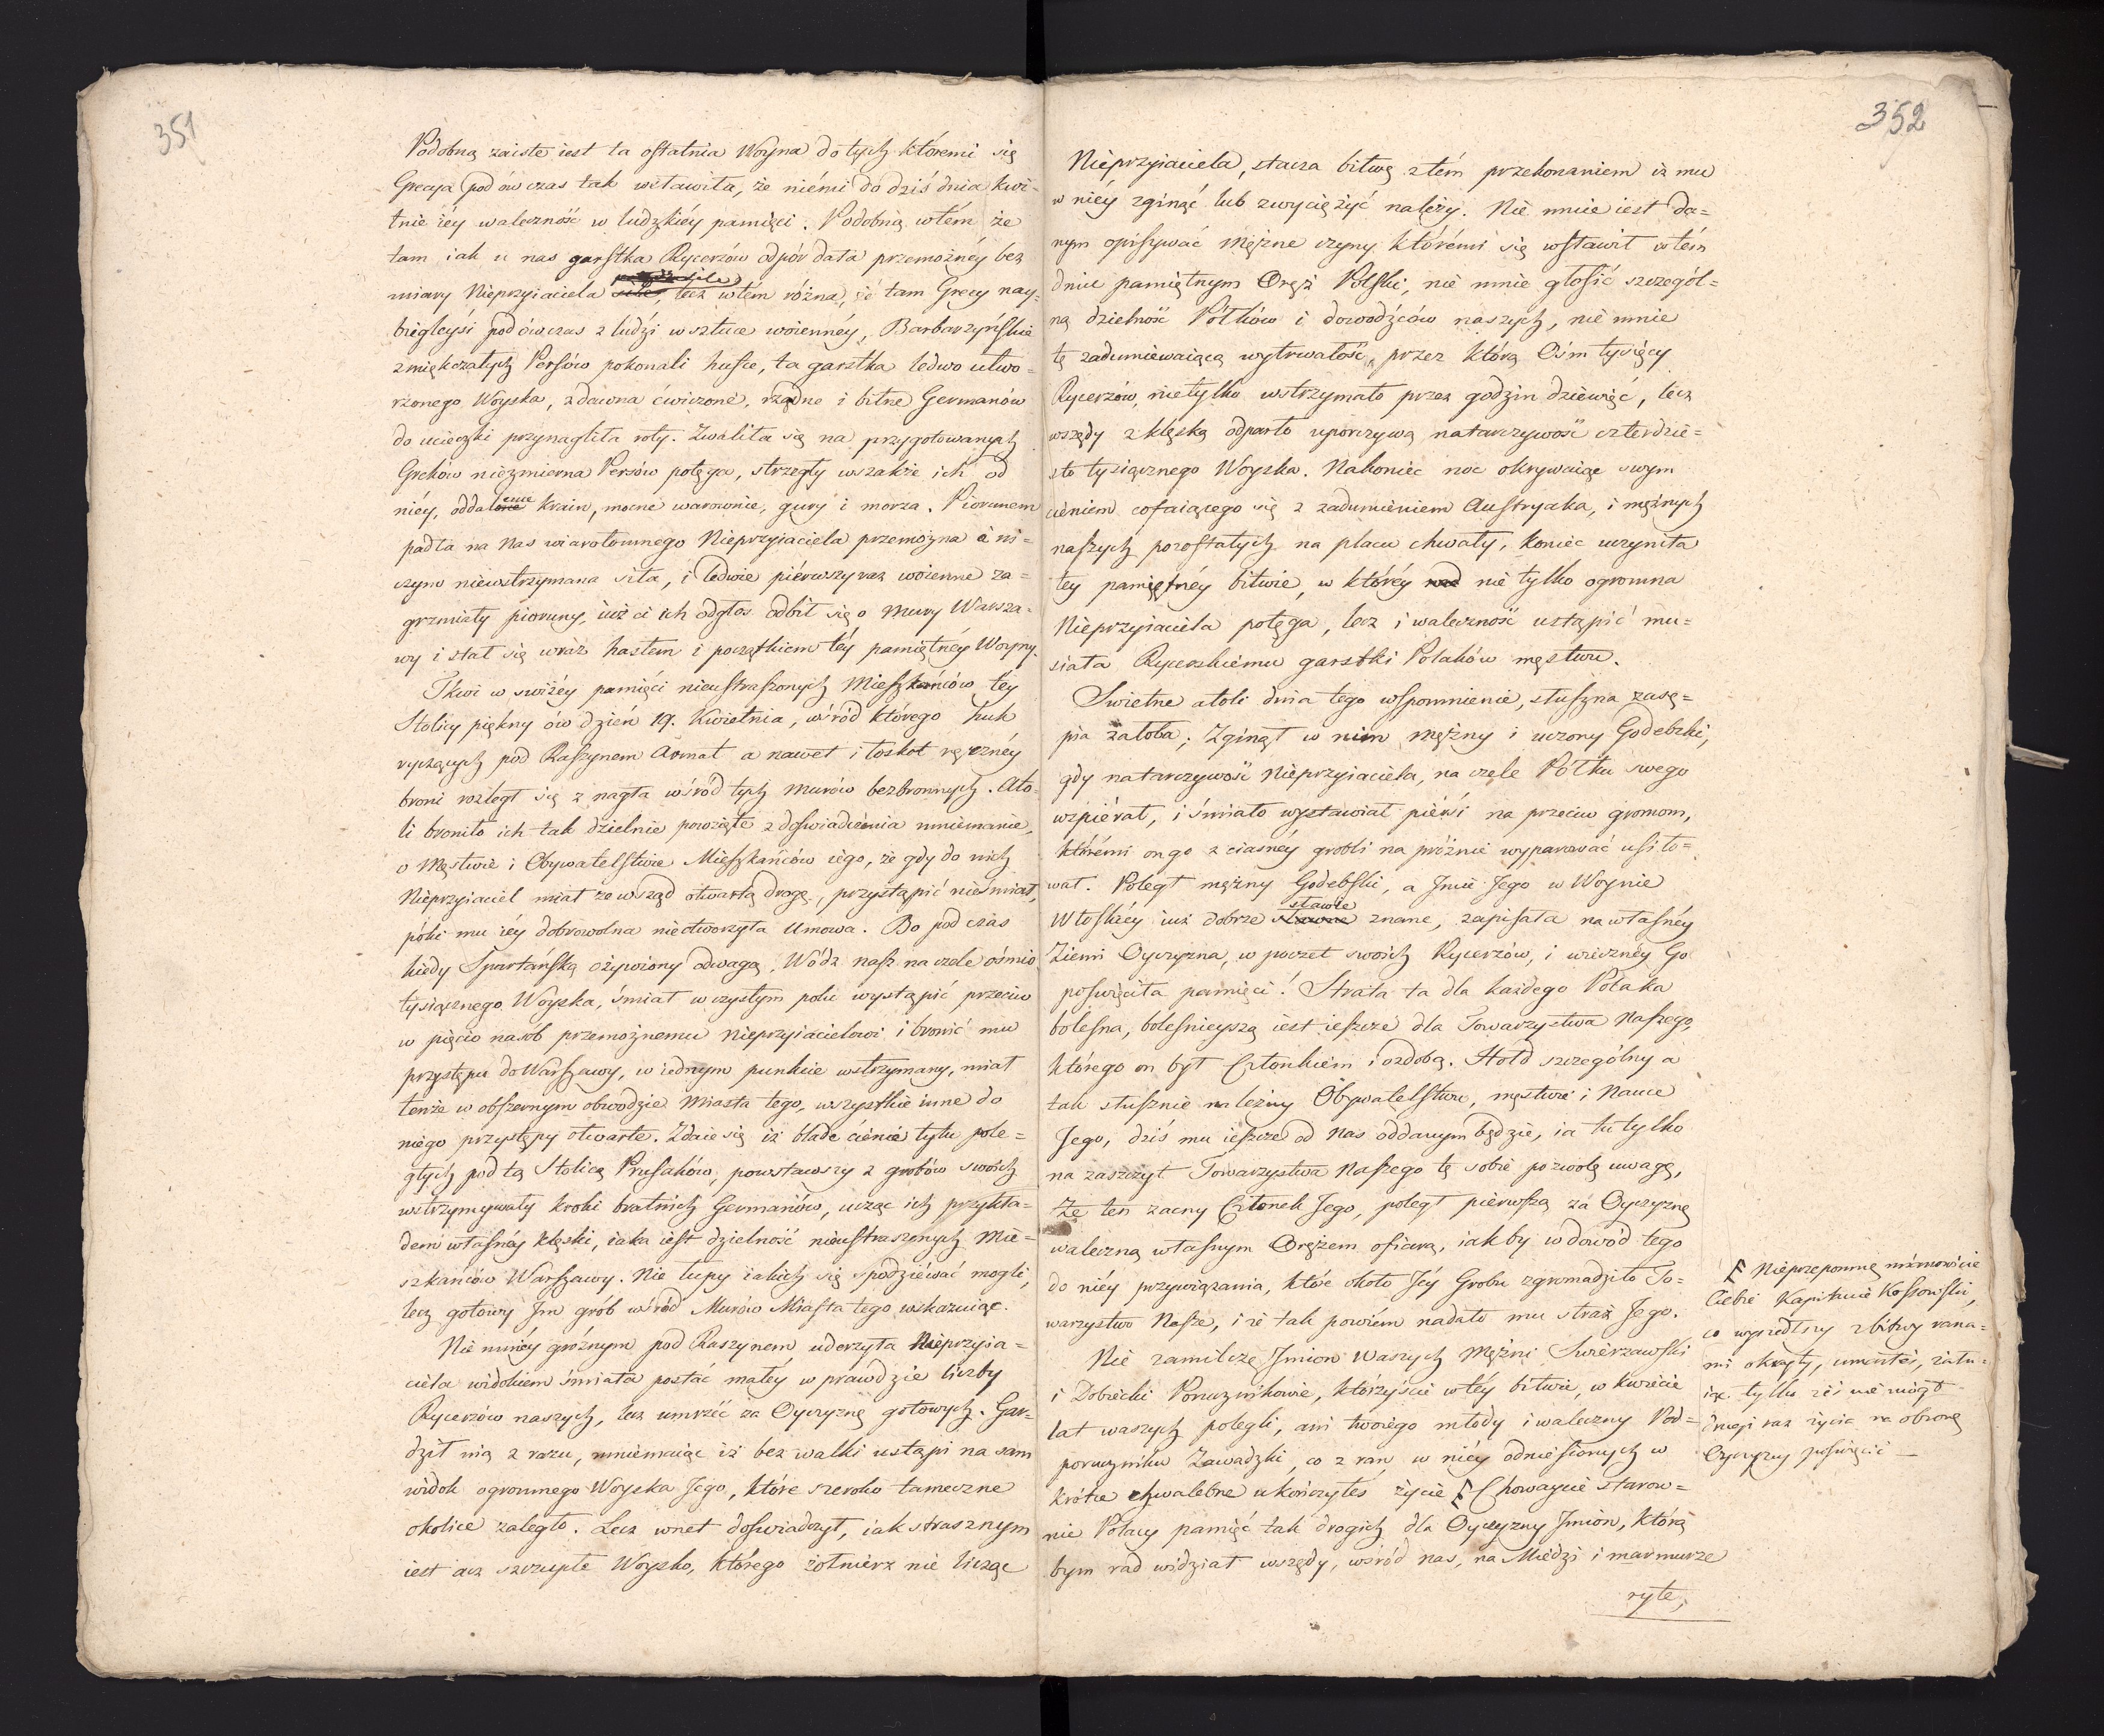 351
Podobną zaiste iest ta ostatnia Woyna do tych któremi się
Grecya podówczas tak wsławiła, że niémi do dziś dnia kwi-
tnie iéy waleczność w ludzkiéy pamięci. Podobną wtém że
tam iak u nas garstka Rycerzów odpór dała przemożnéy bez
miary Nieprzyiaciela sile, lecz wtém różna, że tam Grecy nay-
biegleysi podówczas z ludzi w sztuce woiennéy, Barbarzyńskie
zmiękczałych Persów pokonali hufce, ta garstka ledwo utwo-
rzonego Woyska, zdawna ćwiczone, rządne i bitne Germanów
do ucieczki przynagliła roty. Zwaliła się na przygotowanych
Greków niezmierna Persów potęga, strzegły wszakże ich od
niéy, oddalone krain, mocne warownie, gury i morza. Piorunem
padła na nas wiarołomnego Nieprzyiaciela przemożna à ni-
czym niewstrzymana siła, i ledwie piérwszy raz woienne za-
grzmiały pioruny, iuż ci ich odgłos odbił się o Mury Warsza-
wy i stał się wraz hasłem i początkiem téy pamiętnéy Woyny.
Tkwi w świéżéy pamięci nieustraszonych Mieszkańców tey
Stolicy piękny ów dzień 19. Kwietnia, wśród którego huk
ryczących pod Raszynem Armat a nawet i łoskot ręcznéy
broni rozległ się z nagła wśród tych murów bezbronnych. Ato-
li broniło ich tak dzielnie powzięte z doświadczenia mniemanie,
o Męstwie i Obywatelstwie Mieszkańców iego, że gdy do nich
Nieprzyiaciel miał zewsząd otwartą drogę, przystąpić nieśmiał,
póki mu iéy dobrowolna nieotworzyła Umowa. Bo podczas
kiedy Spartańską ożywiony odwagą, Wódz nasz na czele ośmio
tysiącznego Woyska, śmiał w czystym polu wystąpić przeciw
w pięcio nasób przemożnemu nieprzyiacielowi i bronić mu
przystępu do Warszawy, w iednym punkcie wstrzymany, miał
tenże w obszernym obwodzie Miasta tego, wszystkie inne do
niego przystępy otwarte. Zdaie się iż blade cienie tylu pole-
głych pod tą Stolicą Prusaków, powstawszy z grobów swoich
wstrzymywały kroki bratnich Germanów, ucząc ich przykła-
dem własnéy klęski, iaka iest dzielność nieustraszonych Mie-
szkańców Warszawy. Nie łupy iakich się spodziéwać mogli,
lecz gotowy Im grób wśród Murów Miasta tego wskazuiąc.
Nie mniéy groźnym pod Raszynem uderzyła Nieprzyia-
ciela widokiem śmiała postać małéy w prawdzie liczby
Rycerzów naszych, lecz umrzéć za Oyczyznę gotowych. Gar-
dził nią z razu, mniemaiąc iż bez walki ustąpi na sam
widok ogromnego Woyska Jego, które szeroko tameczne
okolice zaległo. Lecz wnet doświadczył, iak strasznym
iest acz szczupłe Woysko, którego żołnierz nie licząc
352
Nieprzyiaciela, stacza bitwę z tém przekonaniem iż mu
w niéy zginąć lub zwyciężyć należy. Nie mnie iest da-
nym opisywać Mężne czyny którémi się wsławił w tém
dniu pamiętnym Oręż Polski, nie mnie głosić szczegól-
ną dzielność Półków i dowodźców naszych, nie mnie
tę zadumiewaiącą wytrwałość, przez którą Ośm tysięcy
Rycerzów, nie tylko wstrzymało przez godzin dziewięć, lecz
wszędy z klęską odparło uporczywą natarczywość czterdzie-
sto tysiącznego Woyska. Nakoniec noc okrywaiąc swym
cieniem cofaiącego się z zadumieniem Austryaka, i mężnych
naszych pozostałych na placu chwały, koniec uczyniła
tey pamiętnéy bitwie, w któréy nie tylko ogromna
Nieprzyiaciela potęga, lecz i waleczność ustąpić mu-
siała Rycerskiemu garstki Polaków męstwu.
Świetne atoli dnia tego wspomnienie, słuszna zasę-
pia żałoba; Zginął w nim mężny i uczony Godebski,
gdy natarczywość Nieprzyiaciela, na czele Półku swego
wspiérał, i śmiało wystawiał piérsi na przeciw gromom,
którémi on go z ciasnéy grobli na próżnie wyparować usiło-
wał. Poległ mężny Godebski, a Imie Jego w Woynie
Włoskiéy iuż dobrze sławie znane, zapisała na własnéy
Ziemi Oyczyzna, w poczet swoich Rycerzów, i wiecznéy Go
poświęciła pamięci! Strata ta dla każdego Polaka
bolesna, boleśnieyszą iest ieszcze dla Towarzystwa Naszego,
którego on był Członkiem i ozdobą. Hołd szczególny a
tak słusznie należny Obywatelstwu, męstwu i Nauce
Jego, dziś mu ieszcze od nas oddanym będzie, ia tu tylko
na zaszczyt Towarzystwa Naszego tę sobie pozwolę uwagę,
Że ten zacny Członek Jego, poległ pierwszą za Oyczyznę
waleczną własnym Orężem ofiarą, iakby w dowód tego
do niéy przywiązania, które około Jéy Grobu zgromadziło To-
warzystwo Nasze, i że tak powiém nadało mu straż Jego.
Nie zamilczę Imion Waszych Mężni Swierzawski
i Dobiecki Porucznikowie, którzyście w téy bitwie, w kwiecie
lat waszych polegli, ani twoiego młody i waleczny Pod-
poruczniku Zawadzki, co z ran w niéy odniesionych w
krótce chwalebne ukończyłeś życie Ƒ Chowaycie starow-
nie Polacy pamięć tak drogich dla Oyczyzny Imion, którą
bym rad widział wszędy, wśród nas, na Miedzi i marmurze
ryte,
Ƒ Nieprzepomnę mianowicie
Ciebie Kapitanie Kossowski,
co wyszedłszy z bitwy rana-
mi okryty, umarłeś, żału-
iąc tylko żeś nie mógł
drugi raz życia na obronę
Oyczyzny poświęcić —